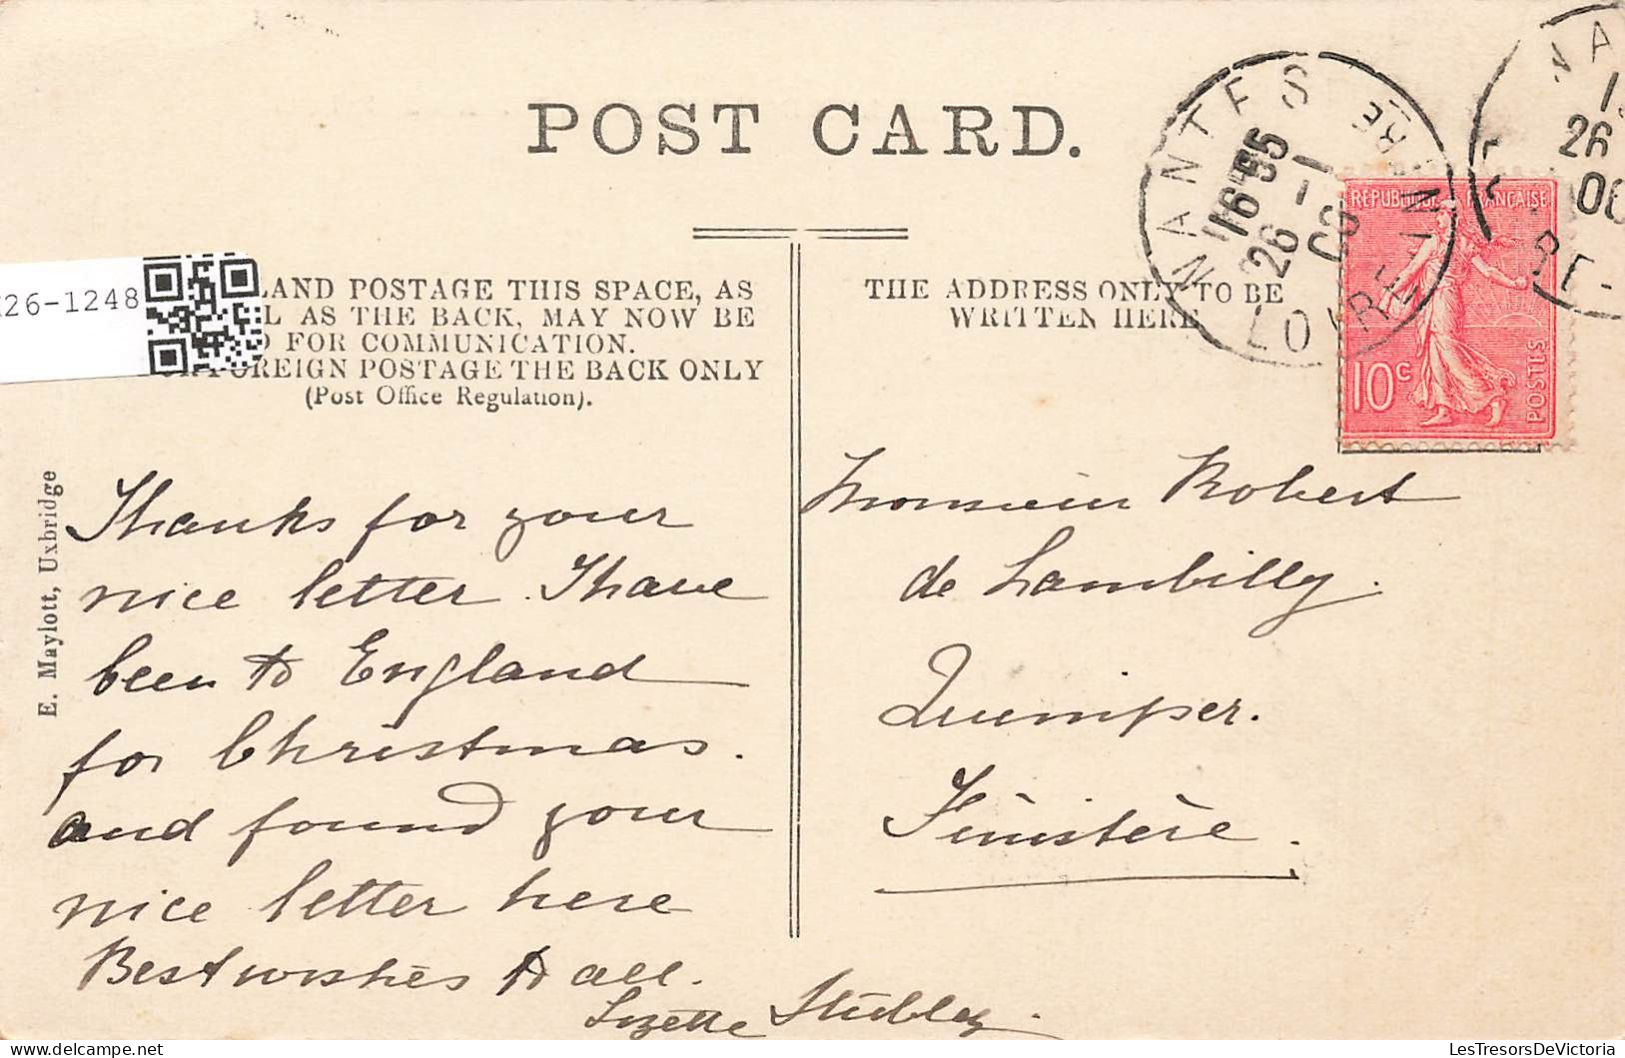 POST CARD.
NANTES
LOIRE INFRE
16 55
26 - 1
06
26
06
RÉPUBLIQUE FRANÇAISE
10c
POSTES
26-1248
LAND POSTAGE THIS SPACE, AS
L AS THE BACK, MAY NOW BE
D FOR COMMUNICATION.
FOREIGN POSTAGE THE BACK ONLY
(Post Office Regulation).
THE ADDRESS ONLY TO BE
WRITTEN HERE
E. Maylott, Uxbridge
Thanks for your
nice letter. I have
been to England
for Christmas.
and found your
nice letter here
Best wishes to all.
Lizette Stubley.
Monsieur Robert
de Lambilly.
Quimper.
Finistère.
LesTresorsDeVictoria